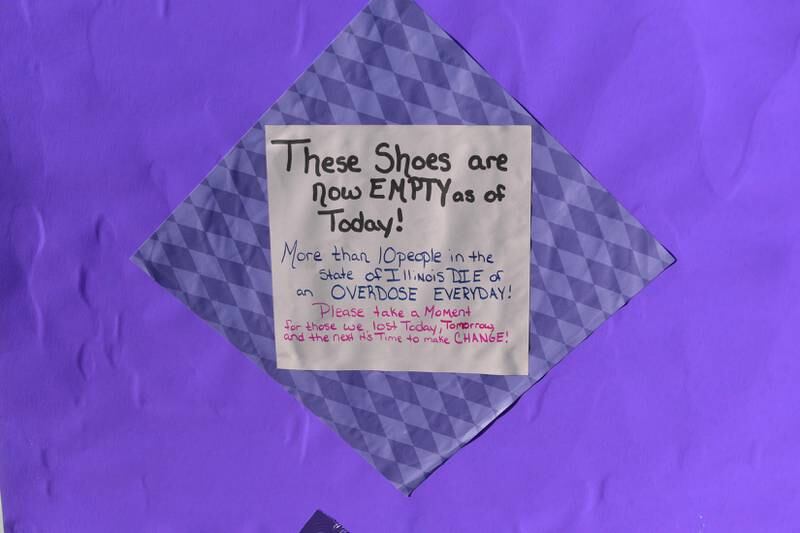 These Shoes are
now EMPTY as of
Today!
More than 10 people in the
State of Illinois DIE of
an OVERDOSE EVERYDAY!
Please take a Moment
for those we lost Today, Tomorrow,
and the next it's Time to make CHANGE!